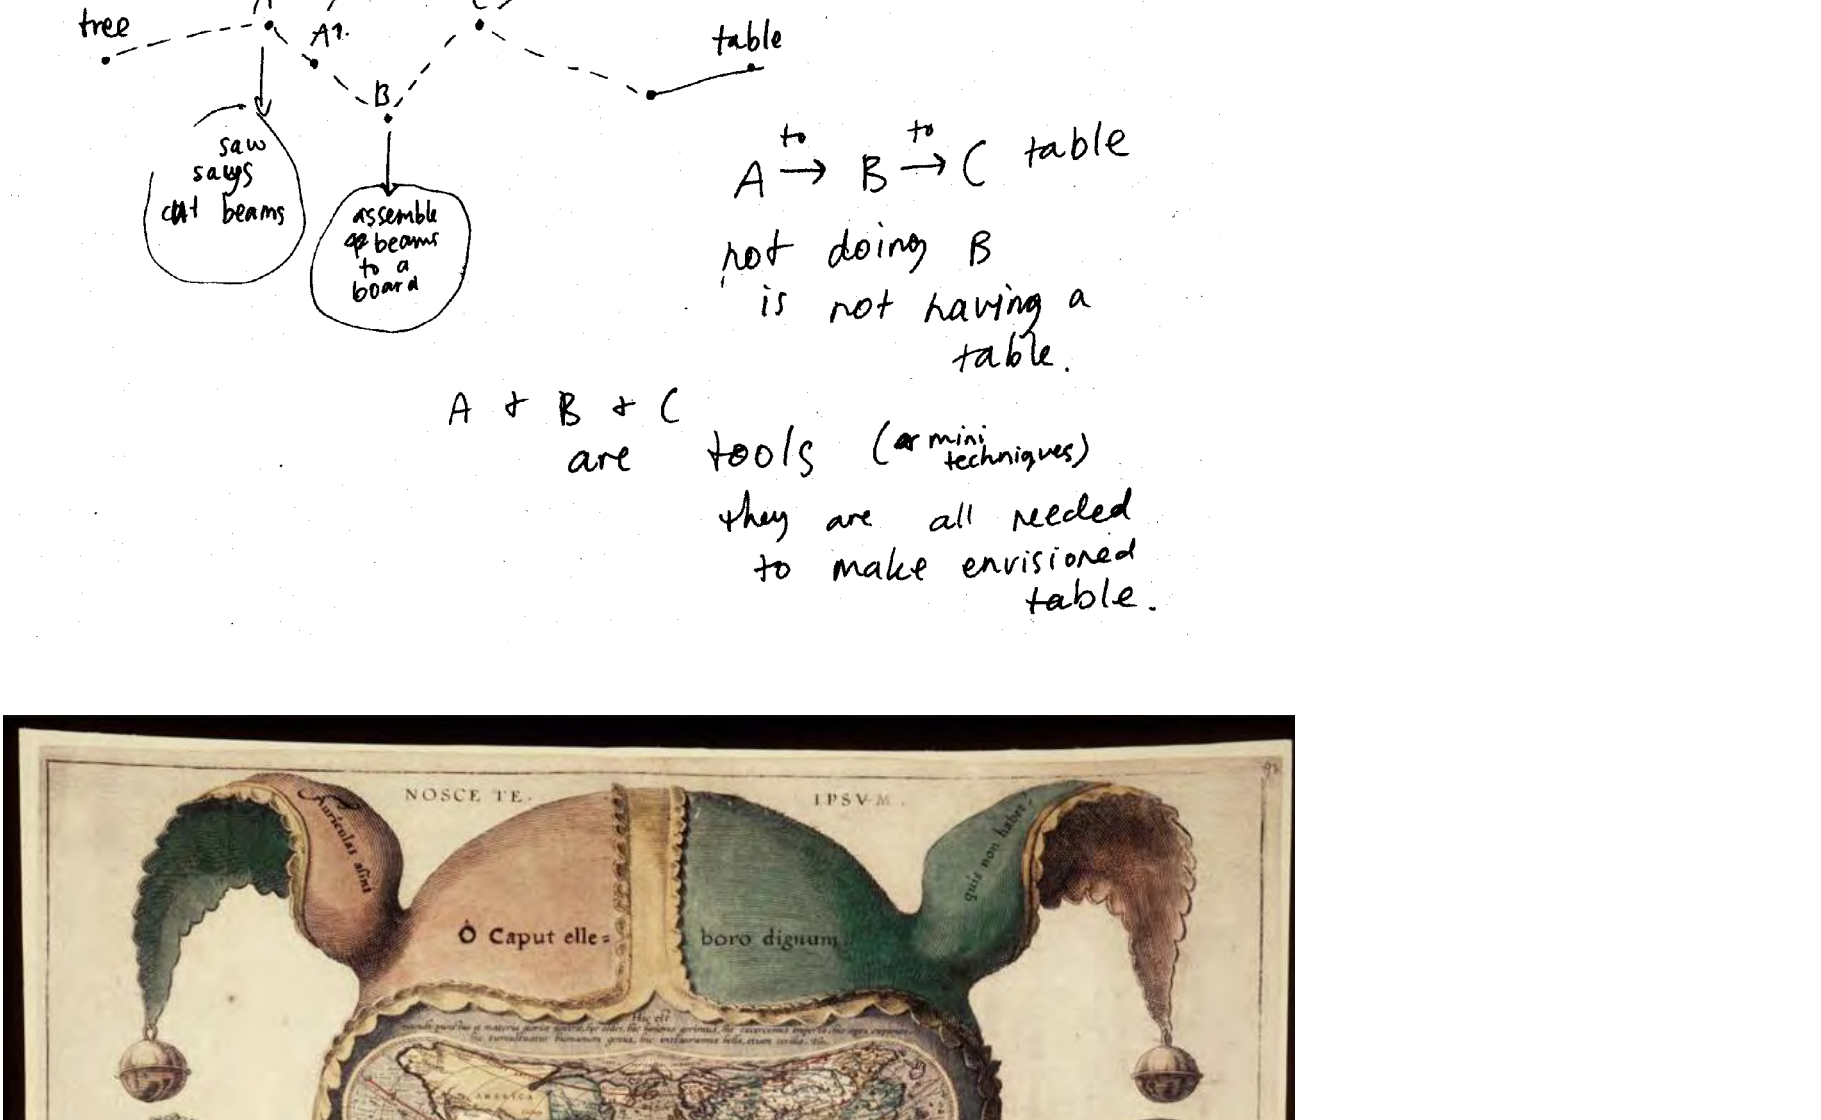 tree
A1.
B
table
saw
says
cut beams
assemble
beams
to a
board
A to → B to → C table
not doing B
is not having a
table.
A + B + C
are tools (or mini
techniques)
they are all needed
to make envisioned
table.
NOSCE TE. IPSVM.
Auriculas asini
quis non habet?
Ô Caput elle= boro dignum.
Hic est
AMERICA